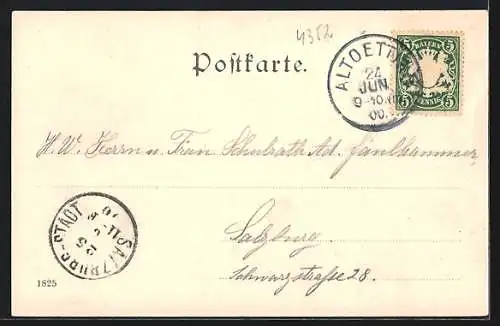 4352
Postkarte.
ALTOETTING
24
JUN.
9-10
00.
BAYERN
5 5
5 PFENNIG 5
H. W. Herrn u. Frau Schulrath Ad. Faulhammer
Salzburg
Schwarzstrasse 28.
SALZBURG-STADT
25
1825